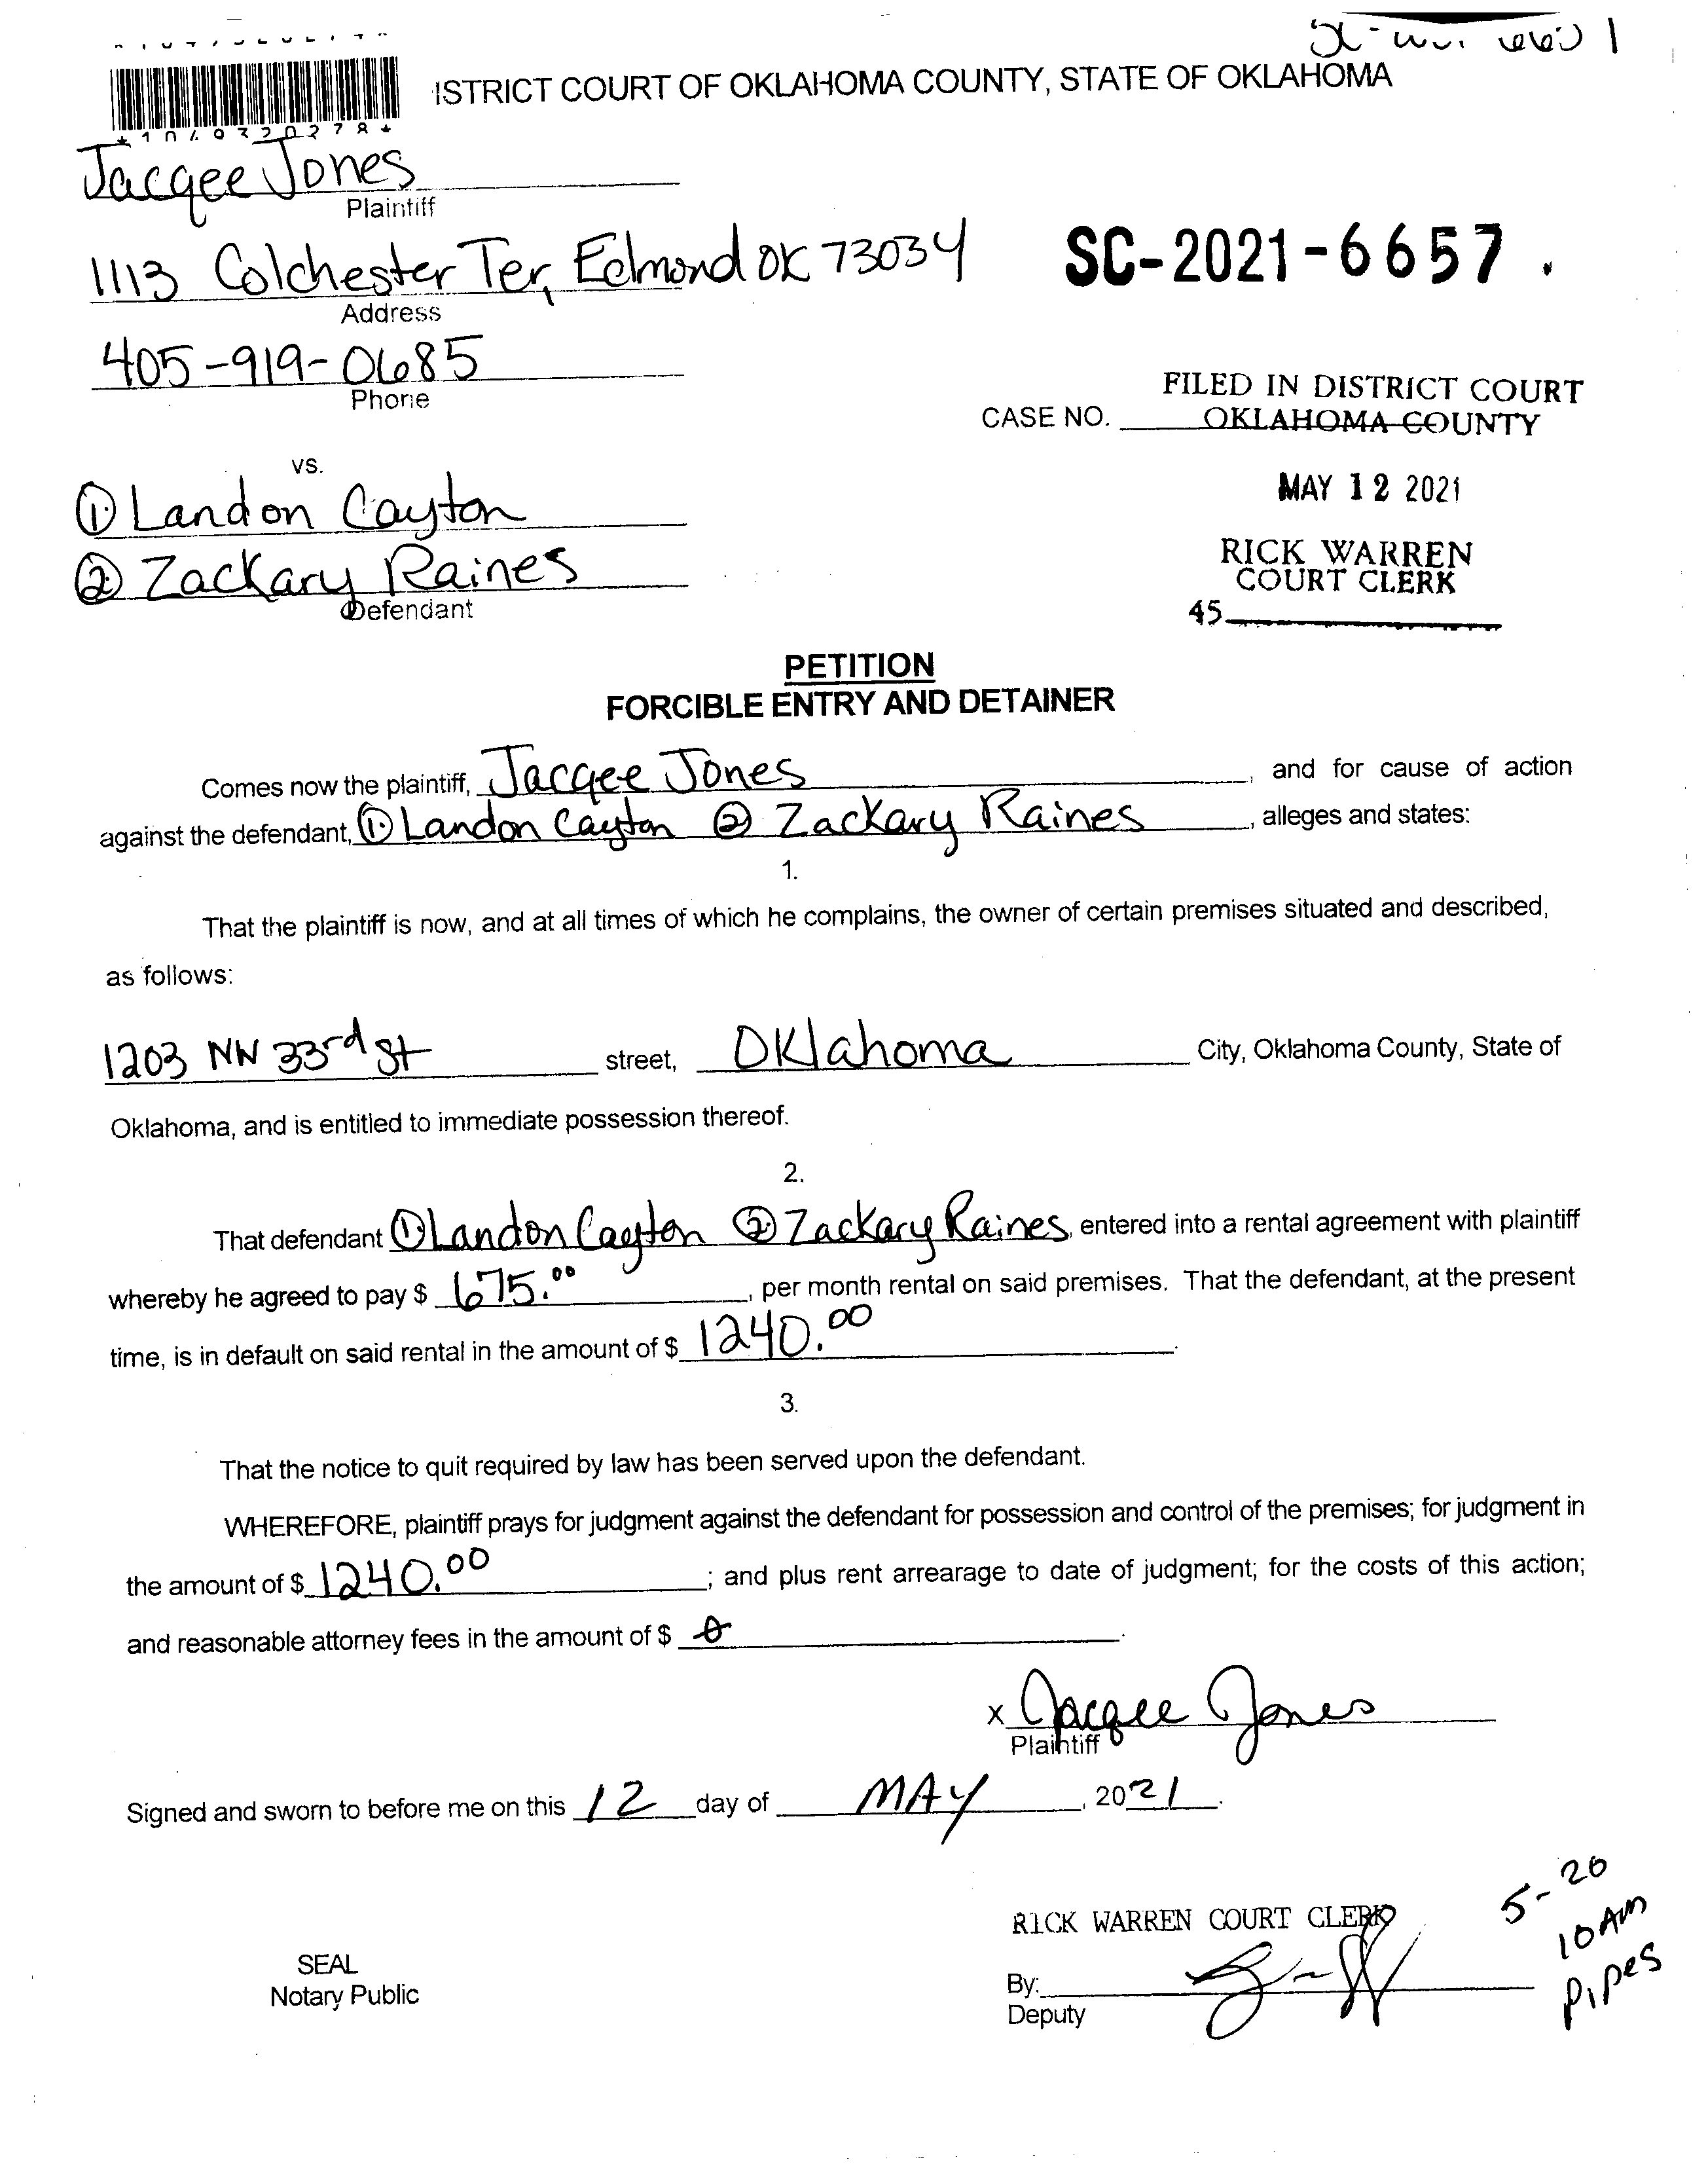 ISTRICT COURT OF OKLAHOMA COUNTY, STATE OF OKLAHOMA
Jacqee Jones
Plaintiff
1113 Colchester Ter, Edmond OK 73034
Address
SC-2021-6657
405-919-0685
Phone
FILED IN DISTRICT COURT
CASE NO. OKLAHOMA COUNTY
vs.
MAY 12 2021
① Landon Cayton
② Zackary Raines
Defendant
RICK WARREN
COURT CLERK
45
PETITION
FORCIBLE ENTRY AND DETAINER
Comes now the plaintiff, Jacqee Jones, and for cause of action
against the defendant, ① Landon Cayton ② Zackary Raines, alleges and states:
1.
That the plaintiff is now, and at all times of which he complains, the owner of certain premises situated and described,
as follows:
1203 NW 33rd St street, Oklahoma City, Oklahoma County, State of
Oklahoma, and is entitled to immediate possession thereof.
2.
That defendant ① Landon Cayton ② Zackary Raines, entered into a rental agreement with plaintiff
whereby he agreed to pay $ 675.00, per month rental on said premises. That the defendant, at the present
time, is in default on said rental in the amount of $ 1240.00.
3.
That the notice to quit required by law has been served upon the defendant.
WHEREFORE, plaintiff prays for judgment against the defendant for possession and control of the premises; for judgment in
the amount of $ 1240.00; and plus rent arrearage to date of judgment; for the costs of this action;
and reasonable attorney fees in the amount of $ 0.
x Jacqee Jones
Plaintiff
Signed and sworn to before me on this 12 day of MAY, 2021.
5-20
10 AM
Pipes
RICK WARREN COURT CLERK
SEAL
Notary Public
By:
Deputy